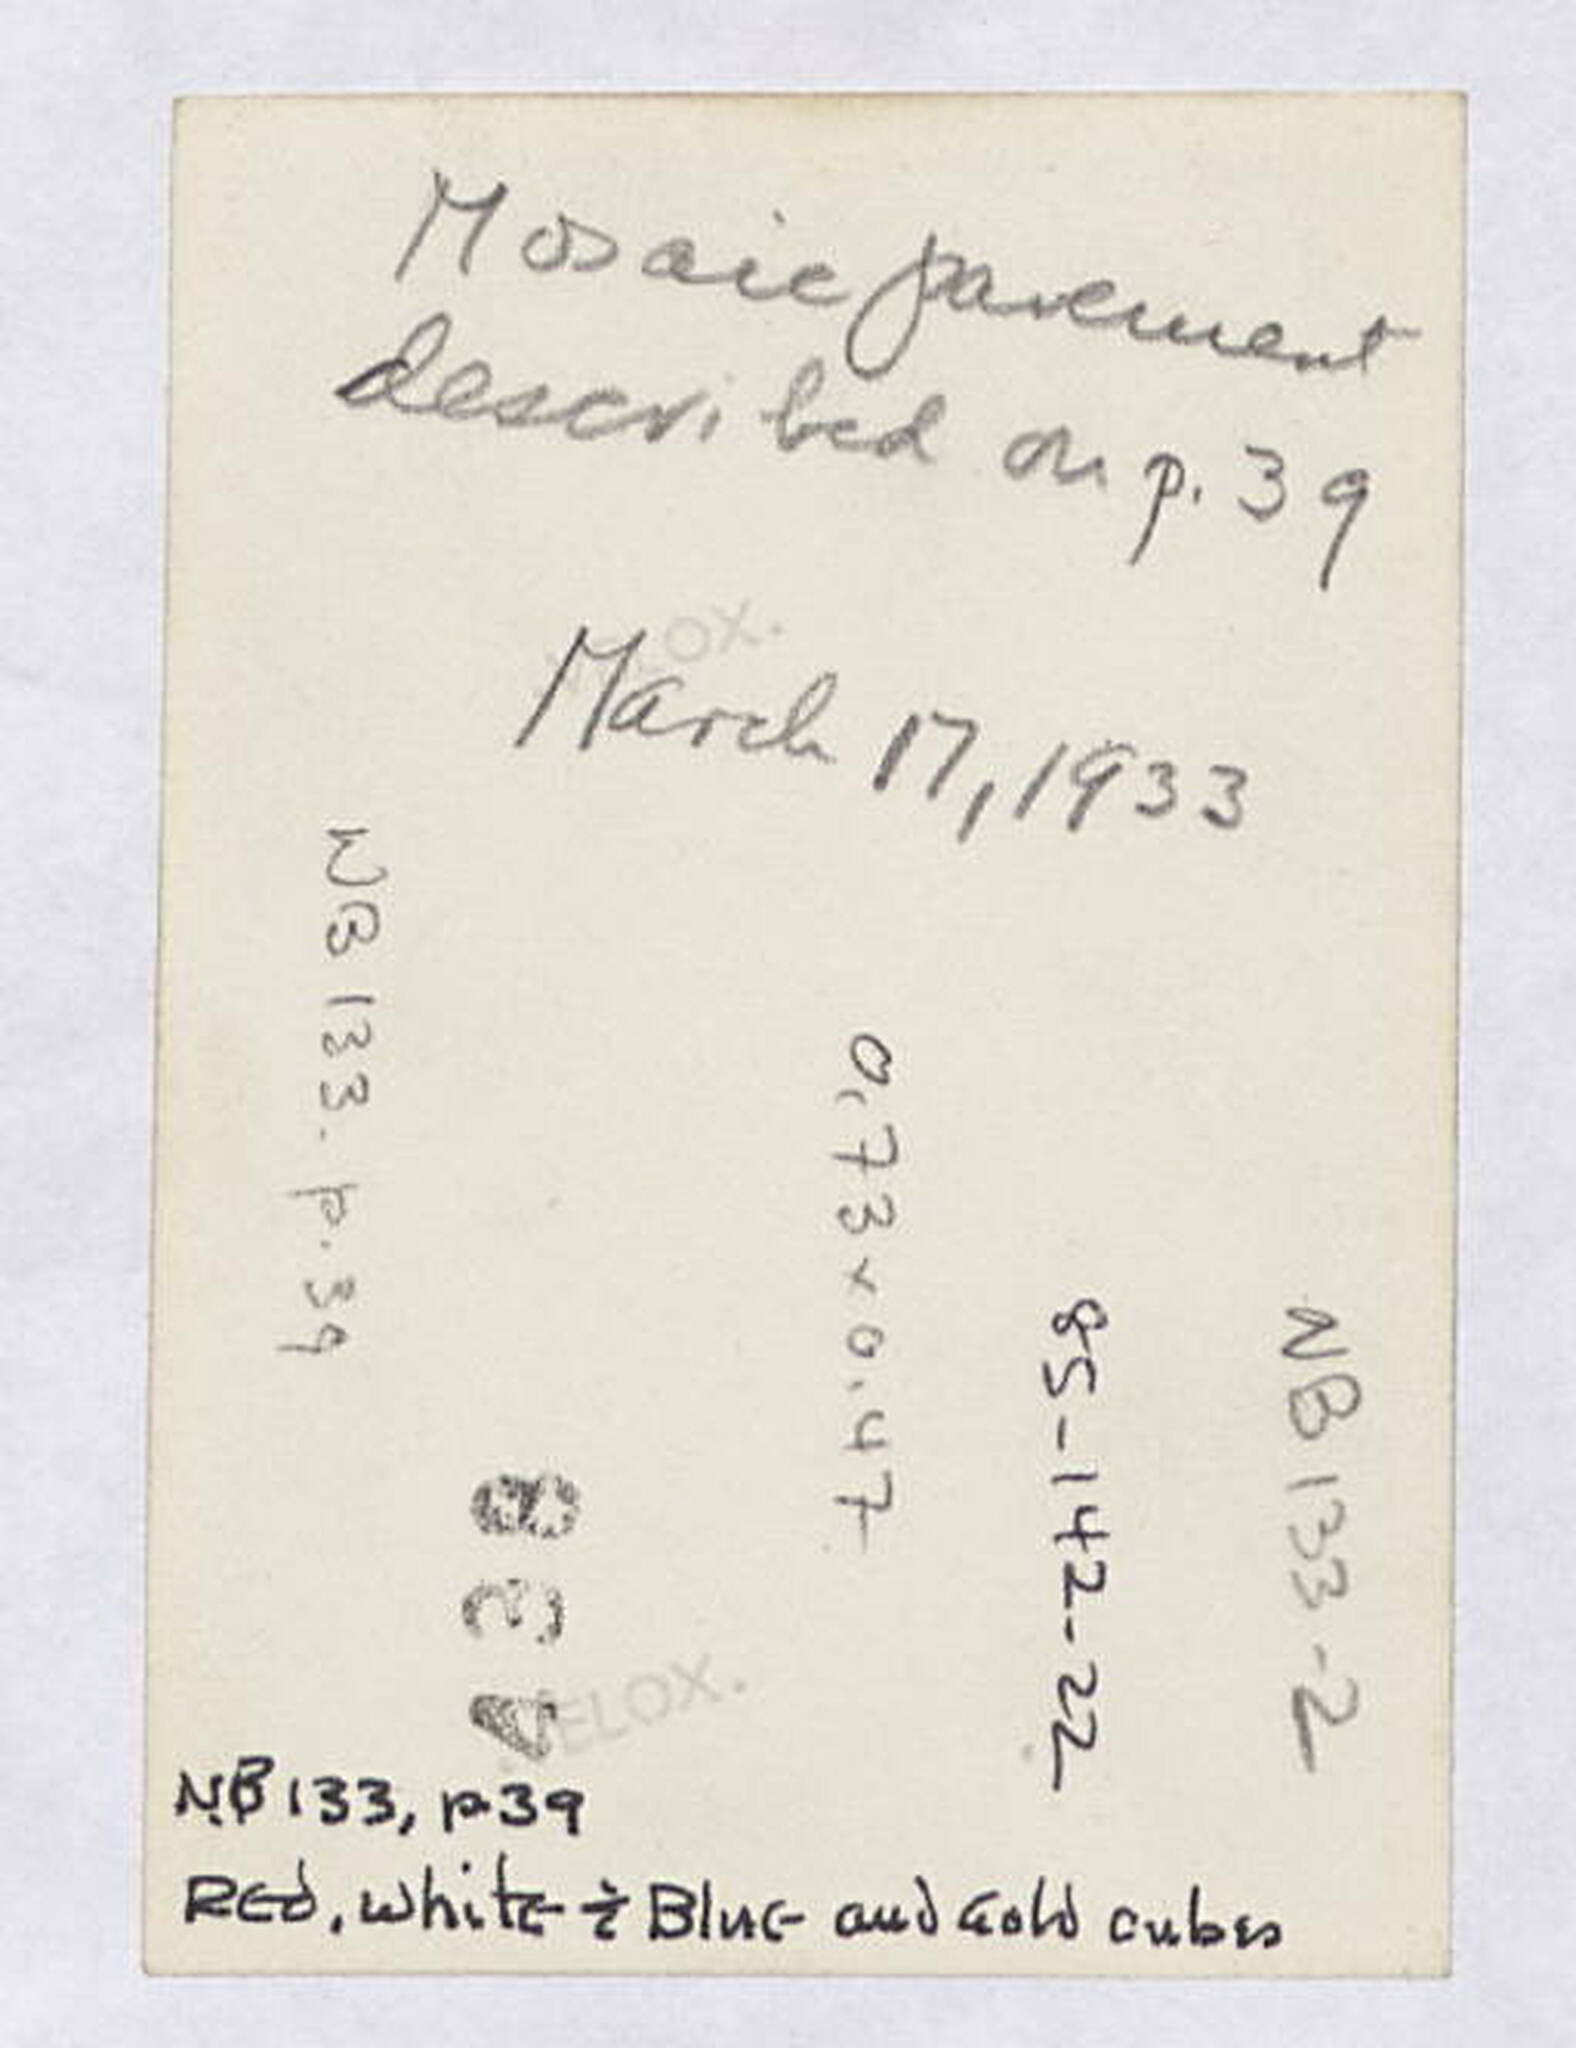 Mosaic pavement
described on p. 39
OX.
March 17, 1933
NB 133. p. 39
0,73 x 0.47
95-142-22
NB 133-2
ELOX.
NB 133, p39
Red, white & Blue and Gold cubes